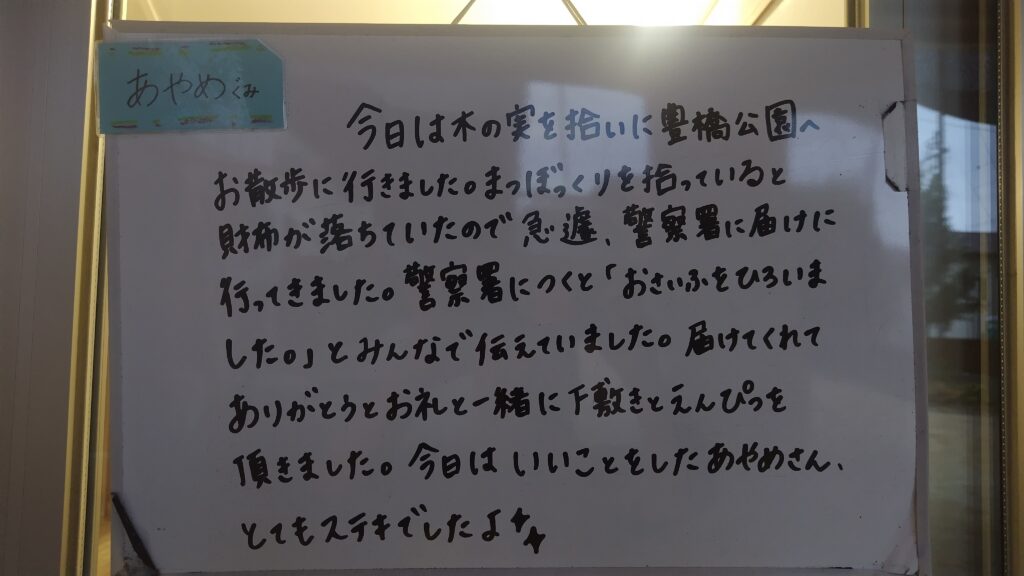 あやめぐみ
今日は木の実を拾いに豊橋公園へ
お散歩に行きました。まつぼっくりを拾っていると
財布が落ちていたので急遽、警察署に届けに
行ってきました。警察署につくと「おさいふをひろいま
した。」とみんなで伝えていました。届けてくれて
ありがとうとお礼と一緒に下敷きとえんぴつを
頂きました。今日はいいことをしたあやめさん、
とてもステキでしたよ